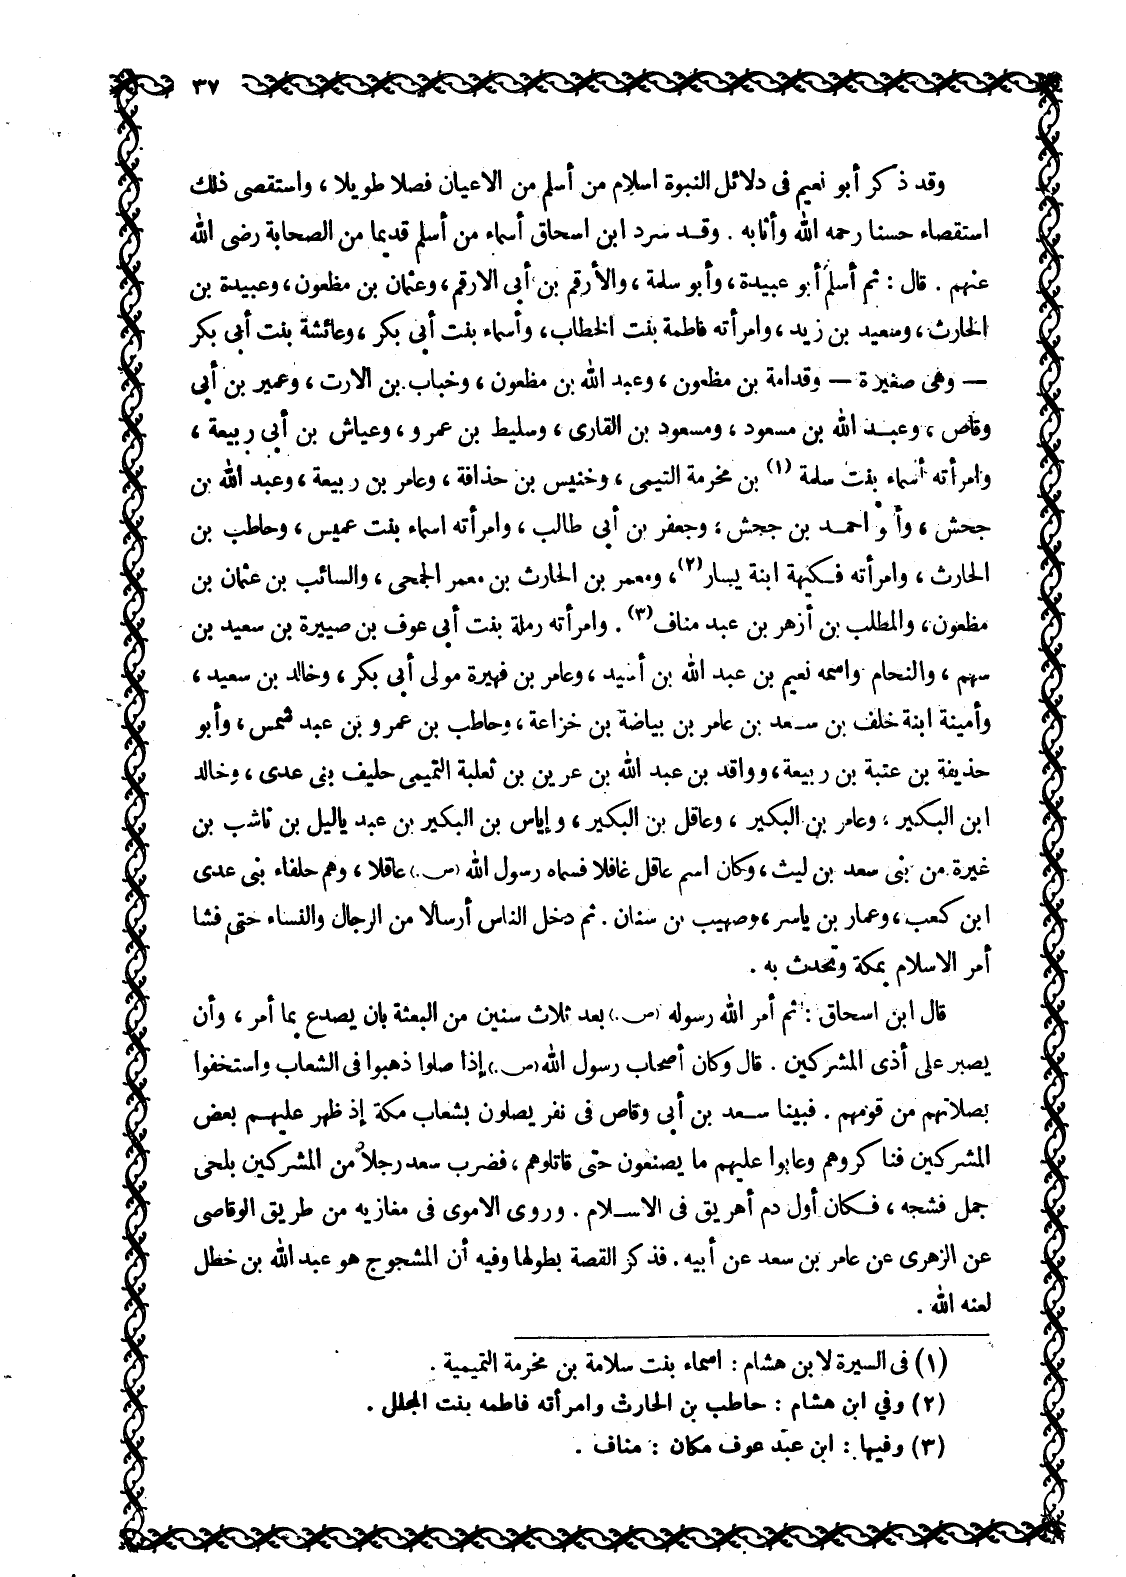 ٣٧
وقد ذكر أبو نعيم فى دلائل النبوة اسلام من أسلم من الاعيان فصلا طويلا ، واستقصى ذلك
استقصاء حسنا رحمه الله وأثابه . وقـد سرد ابن اسحاق أسماء من أسلم قديما من الصحابة رضى الله
عنهم . قال : ثم أسلم أبو عبيدة ، وأبو سلمة ، والأرقم بن أبى الارقم ، وعثمان بن مظعون ، وعبيدة بن
الحارث ، وسعيد بن زيد ، وامرأته فاطمة بنت الخطاب ، وأسماء بنت أبى بكر ، وعائشة بنت أبى بكر
— وهى صغيرة — وقدامة بن مظعون ، وعبد الله بن مظعون ، وخباب بن الارت ، وعمير بن أبى
وقاص ، وعبـد الله بن مسعود ، ومسعود بن القارى ، وسليط بن عمرو ، وعياش بن أبى ربيعة ،
وامرأته أسماء بنت سلمة (١) بن مخرمة التيمى ، وخنيس بن حذافة ، وعامر بن ربيعة ، وعبد الله بن
جحش ، وأبو احمـد بن جحش ؛ وجعفر بن أبى طالب ، وامرأته اسماء بنت عميس ، وحاطب بن
الحارث ، وامرأته فـكيهة ابنة يسار (٢)، ومعمر بن الحارث بن معمر الجمحى ، والسائب بن عثمان بن
مظعون ، والمطلب بن أزهر بن عبد مناف (٣) . وامرأته رملة بنت أبى عوف بن صبيرة بن سعيد بن
سهم ، والنحام واسمه نعيم بن عبد الله بن أسيد ، وعامر بن فهيرة مولى أبى بكر ، وخالد بن سعيد ،
وأمينة ابنة خلف بن سـعد بن عامر بن بياضة بن خزاعة ، وحاطب بن عمرو بن عبد شمس ، وأبو
حذيفة بن عتبة بن ربيعة ، وواقد بن عبد الله بن عرين بن ثعلبة التميمى حليف بنى عدى ، وخالد
ابن البـكير ، وعامر بن البكير ، وعاقل بن البكير ، وإياس بن البكير بن عبد ياليل بن ناشب بن
غيرة من بنى سعد بن ليث ، وكان اسم عاقل غافلا فسماه رسول الله (ص.) عاقلا ، وهم حلفاء بنى عدى
ابن كعب ، وعمار بن ياسر ، وصهيب بن سنان . ثم دخل الناس أرسالا من الرجال والنساء حتى فشا
أمر الاسلام بمكة وتحدث به .
قال ابن اسحاق : ثم أمر الله رسوله (ص.) بعد ثلاث سنين من البعثة بان يصدع بما أمر ، وأن
يصبر على أذى المشركين . قال وكان أصحاب رسول الله (ص.) إذا صلوا ذهبوا فى الشعاب واستخفوا
بصلاتهم من قومهم . فبينا سـعد بن أبى وقاص فى نفر يصلون بشعاب مكة إذ ظهر عليهـم بعض
المشركين فناكروهم وعابوا عليهم ما يصنعون حتى قاتلوهم ، فضرب سعد رجلا من المشركين بلحى
جمل فشجه ، فـكان أول دم أهريق فى الاسـلام . وروى الاموى فى مغازيه من طريق الوقاصى
عن الزهرى عن عامر بن سعد عن أبيه . فذكر القصة بطولها وفيه أن المشجوج هو عبد الله بن خطل
لعنه الله .
(١) فى السيرة لابن هشام : اسماء بنت سلامة بن مخرمة التميمية .
(٢) وفي ابن هشام : حاطب بن الحارث وامرأته فاطمه بنت المجلل .
(٣) وفيها : ابن عبد عوف مكان : مناف .